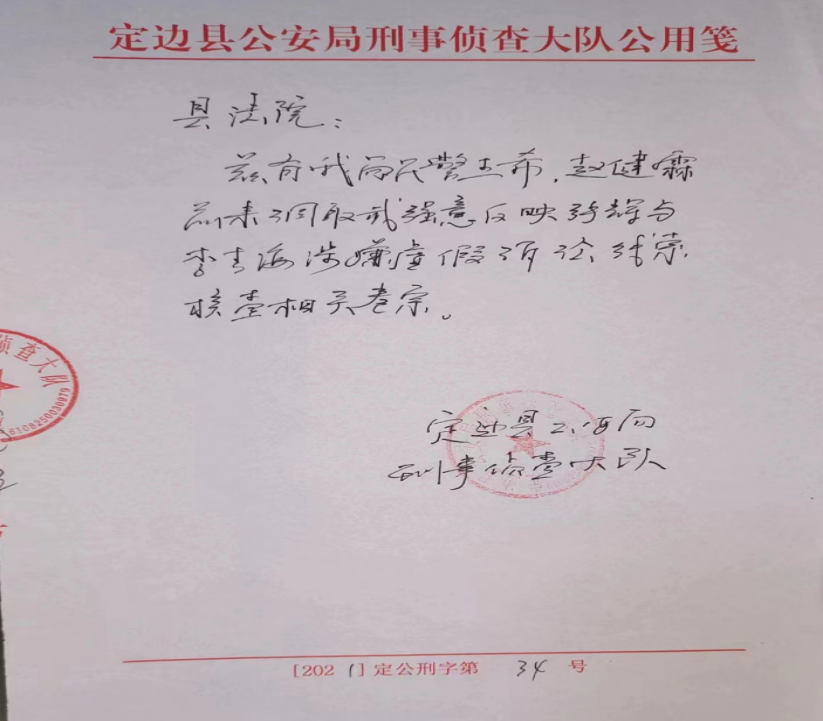 定边县公安局刑事侦查大队公用笺
县法院：
兹有我局民警王希，赵健霖
前来调取武强意反映张辉与
李青海涉嫌虚假诉讼线索
核查相关卷宗。
侦查大队
6108250030879
定边县公安局
刑事侦查大队
[2021]定公刑字第 34 号